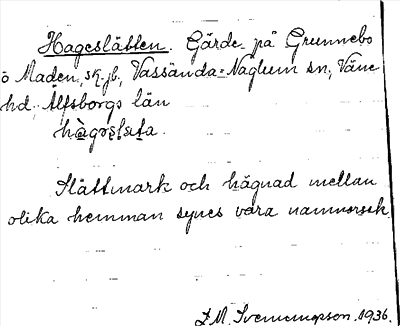 Hageslätten. Gärde på Grunnebo
ö Maden, sk. jb., Vassända=Naglum sn, Väne
hd, Älfsborgs län
hàgɷslæta.
Slättmark och hägnad mellan
olika hemman synes vara namnorsak.
1936.